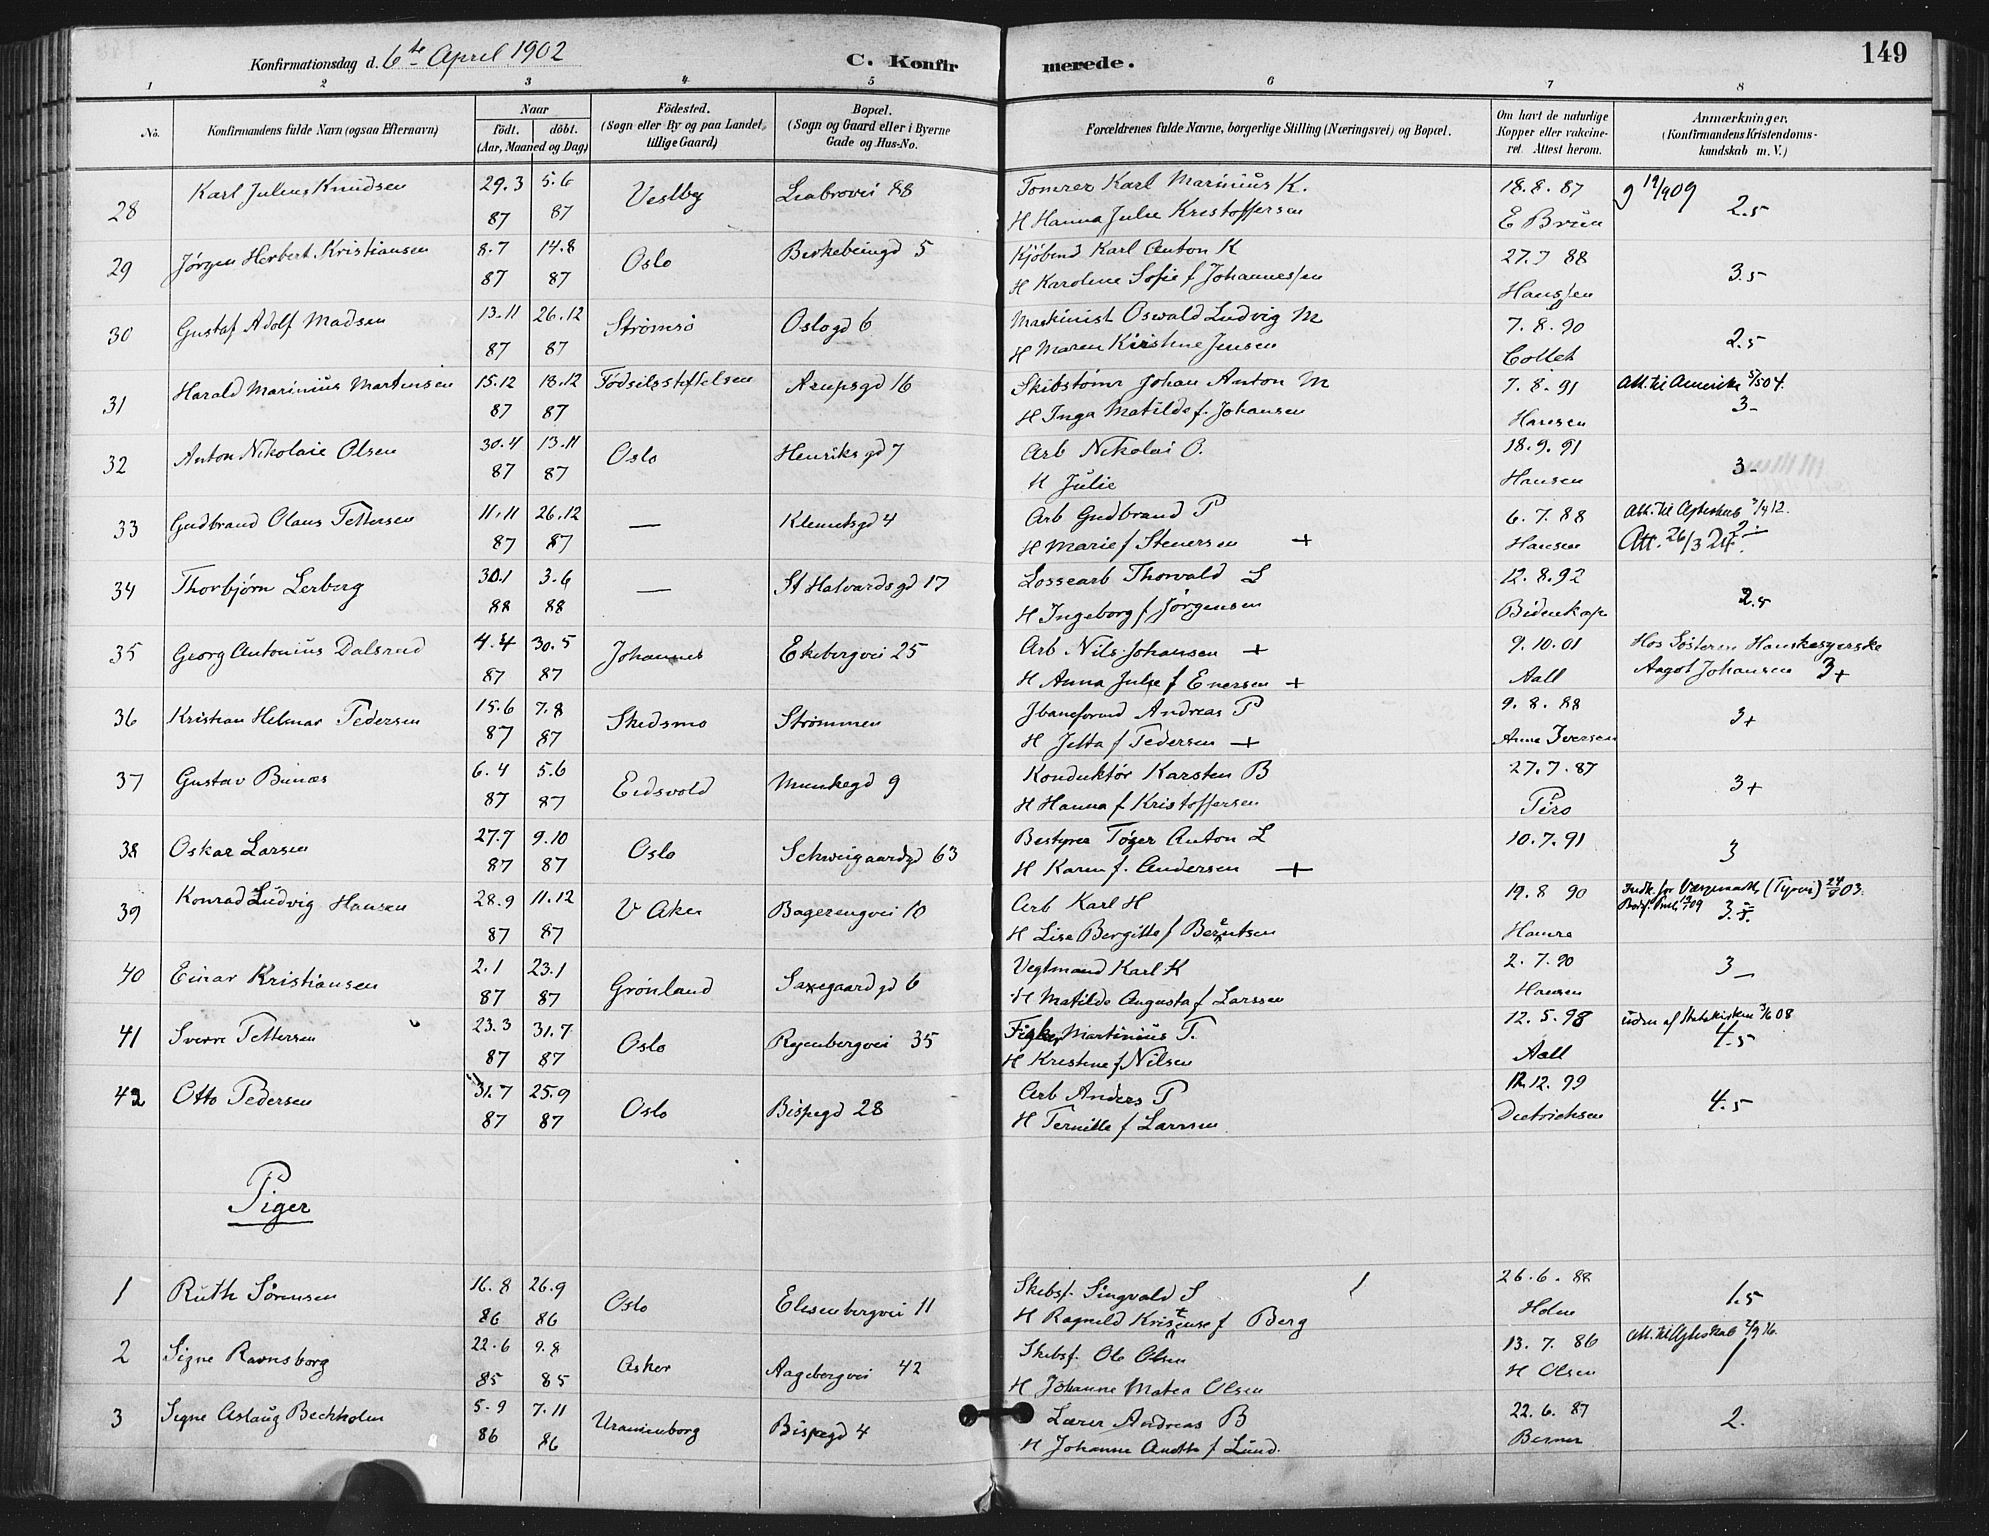 Konfirmationsdag d. 6te April 1902 C. Konfirmerede. 149
1 2 3 4 5 6 7 8
No. Konfirmandens fulde Navn (ogsaa Efternavn) Naar födt. döbt. (Aar, Maaned og Dag) Födested. (Sogn eller By og paa Landet tillige Gaard) Bopæl. (Sogn og Gaard eller i Byerne Gade og Hus-No. Forældrenes fulde Navne, borgerlige Stilling (Næringsvei) og Bopæl. Om havt de naturlige Kopper eller vakcineret. Attest herom. Anmerkninger, (Konfirmandens Kristendomskundskab m. V.)
28 Karl Julius Knudsen 29.3 5.6 Vestby Liabrovei 88 Tomrer Karl Marinius K. 18.8.87 2.5
87 87 H Hanna Julie Kristoffersen E Bruun
29 Jørgen Herbert Kristiansen 8.7 14.8 Oslo Birkebeingd 5 Kjøbmd Karl Anton K 27.7 88 3.5
87 87 H Karoline Sofie f Johannessen Hanssen
30 Gustaf Adolf Madsen 13.11 26.12 Strømsö Oslogd 6 Maskinist Oswald Ludvig M 7.8.90 2.5
87 87 H Maren Kirstine Jensen Collet
31 Harald Marinius Martinsen 15.12 18.12 Fødselsstiftelsen Arupsgd 16 Skibstømr Johan Anton M 7.8.91 Att. til Amerika 5/5 04.
87 87 H Inga Matilde f. Johansen Hansen 3-
32 Anton Nikolaie Olsen 30.4 13.11 Oslo Henriksgd 7 Arb Nikolai O. 18.9.91 3-
87 87 H Julie Hansen
33 Gudbrand Olaus Pettersen 11.11 26.12 — Klemetsgd 4 Arb Gudbrand P 6.7.88
87 87 H Marie f Stenersen + Hansen Att. 26/3 24.
34 Thorbjørn Lerberg 30.1 3.6 — St Halvardsgd 17 Lossearb Thorvald L 12.8.92 2.5
88 88 H Ingeborg f Jörgensen Bidenkap
35 Georg Antonius Dalsrud 4.4 30.5 Johannes Ekebergvei 25 Arb Nils Johansen + 9.10.01 Hos Søsteren Hanskesyerske
87 87 H Anna Julie f Enersen + Aall Aagot Johansen 3+
36 Kristian Helmar Pedersen 15.6 7.8 Skedsmo Strømmen Jbaneformd Andreas P 9.8.88 3+
87 87 H Jetta f Pedersen + Anna Iversen
37 Gustav Bunæs 6.4 5.6 Eidsvold Munkegd 9 Konduktör Karsten B 27.7.87 3+
87 87 H Hanna f Kristoffersen
38 Oskar Larsen 27.7 9.10 Oslo Schweigaardgd 63 Bestyrer Töger Anton L 10.7.91 3
87 87 H Karen f. Andersen +
39 Konrad Ludvig Hansen 28.9 11.12 V Aker Bagerengvei 10 Arb Karl H 19.8 90
87 87 H Lise Bergitte f Berntsen
40 Einar Kristiansen 2.1 23.1 Grönland Saxegaardgd 6 Vegtmand Karl K 2.7.90 3-
87 87 H Matilde Augusta f Larssen Hansen
41 Sverre Pettersen 23.3 31.7 Oslo Ryenbergvei 35 Fisker Martinius P. 12.5.98 uden af Statskirken
87 87 H Kristine f Nilsen Aall 4.5
42 Otto Pedersen 31.7 25.9 Oslo Bispegd 28 Arb Anders P 12.12.99 4.5
87 87 H Pernille f Larssen Dietrichsen
Piger
1 Ruth Sörensen 16.8 26.9 Oslo Elisenbergvei 11 Skibsf. Singvald S 1 26.6.88 1.5
86 86 H Ragnild Kristense f Berg Holm
2 Signe Ravnsborg 22.6 9.8 Asker Aagebergvei 42 Skibsf. Ole Olsen 13.7.86
85 85 H Johanne Matea Olsen H Olsen 1
3 Signe Aslaug Bechholm 5.9 7.11 Uranienborg Bispegd 4 Lærer Andreas B 22.6.87 2.
86 86 H Johanne f Lund. Berner